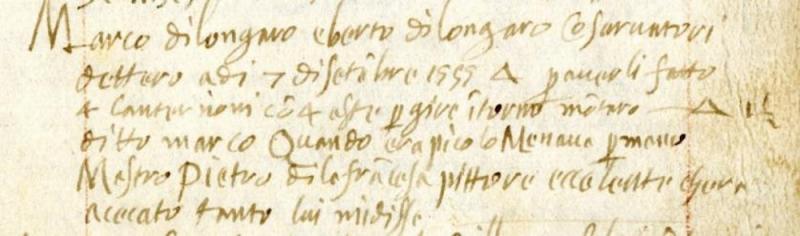 Marco di longaro e berto di longaro Cōsarvatori
dettero a di 7 di setēbre 1555 Δ p averli fatto
4 lanternoni cō 4 aste p gire ītorno
ditto marco Quando era picolo Menava p mano
Mastro Pietro di la frācesca pittore ecelente che era
acecato tanto lui mi disse